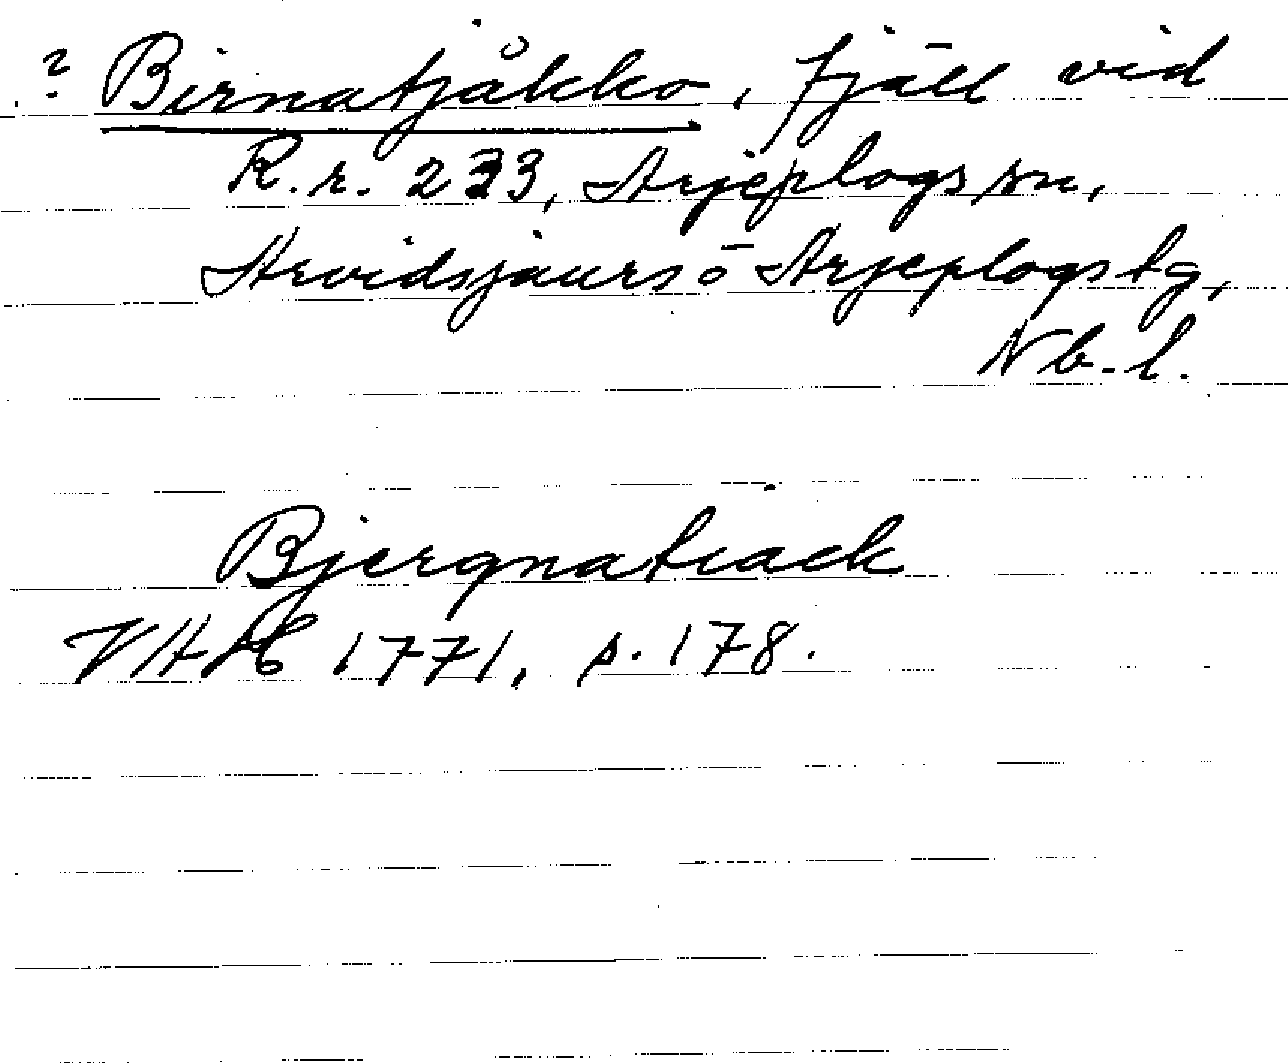 ? Birnatjåkko, fjäll vid
R.r. 233, Arjeplogs sn,
Arvidsjaurs o Arjeplogs tg,
Nb.l.
Bjergnatiack
VHAH 1771, s. 178.